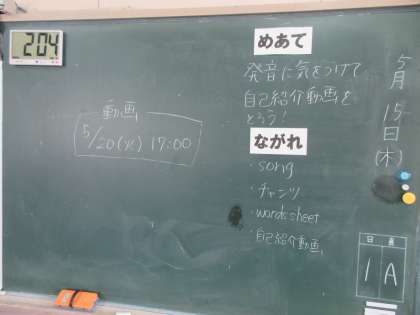 2:04
5月15日(木)
めあて
発音に気をつけて
自己紹介動画を
とろう!
ながれ
・song
・チャンツ
・wordssheet
・自己紹介動画
動画
5/20(火) 17:00
日直
1A